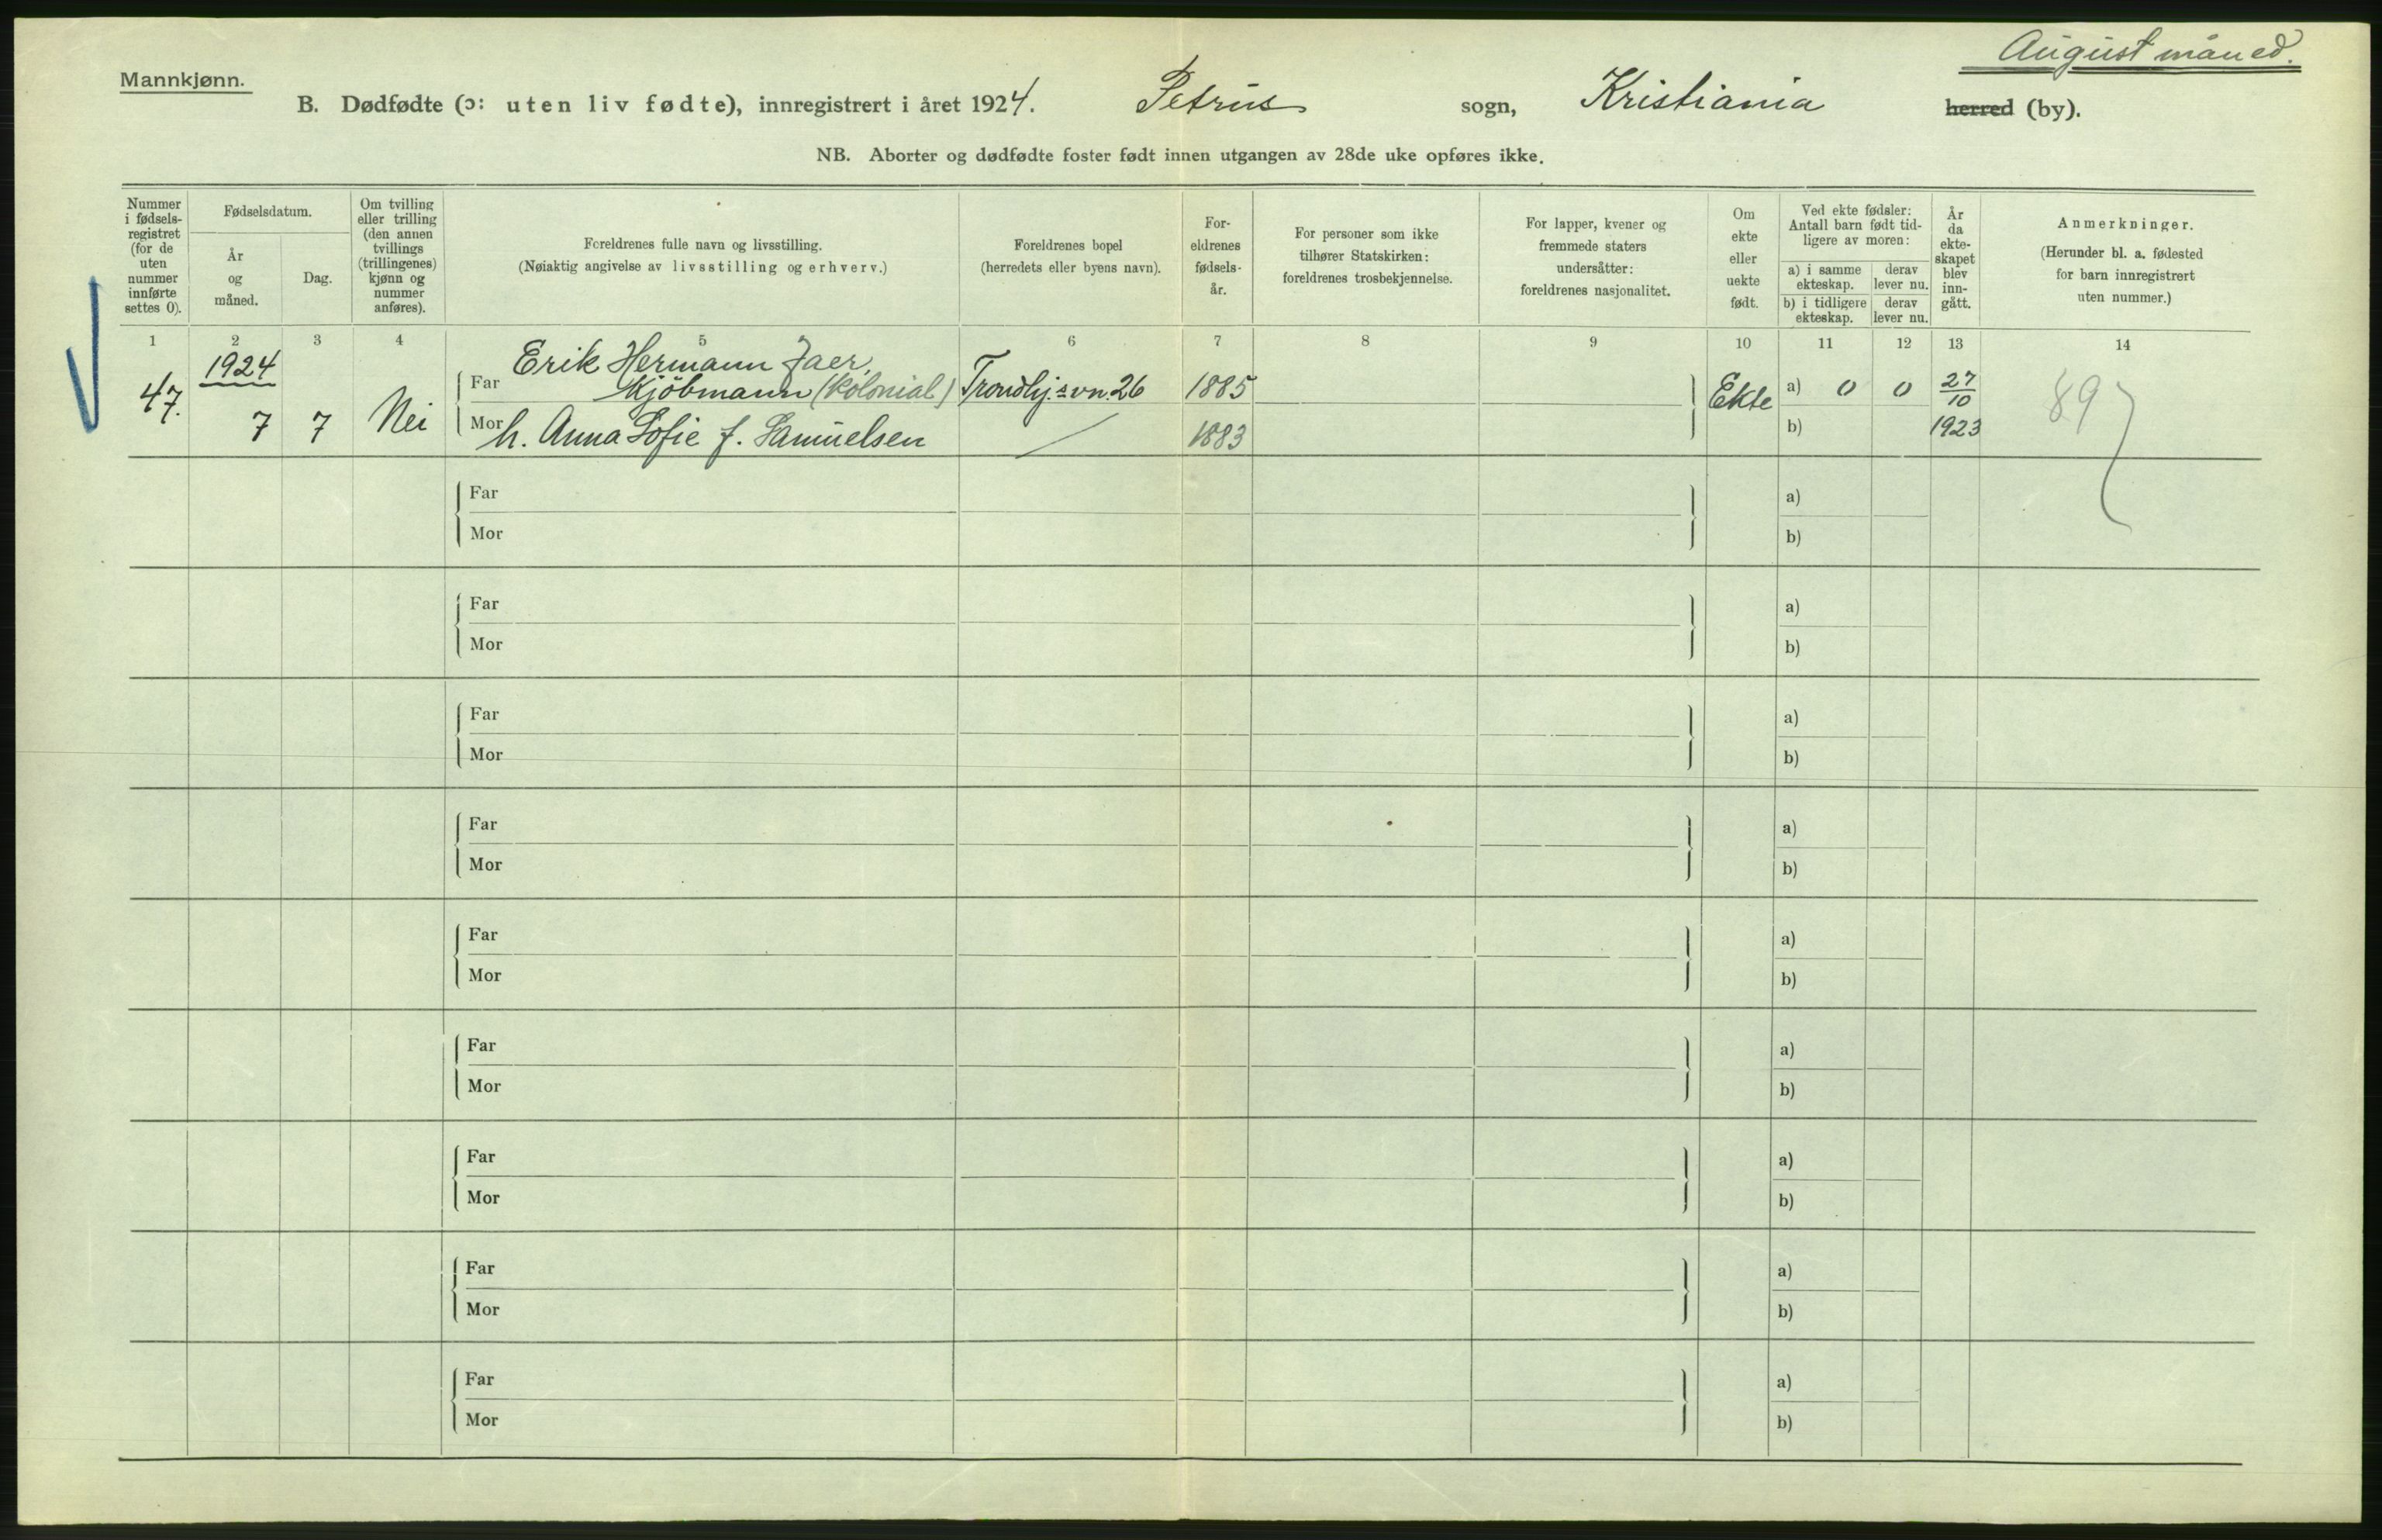 August måned.
Mannkjønn.
B. Dødfødte (ɔ: uten liv fødte), innregistrert i året 1924. Petrus sogn, Kristiania herred (by).
NB. Aborter og dødfødte foster født innen utgangen av 28de uke opføres ikke.
Nummer
i fødsels-
registret
(for de
uten
nummer
innførte
settes 0).
Fødselsdatum.
År
og
måned.
Dag.
Om tvilling
eller trilling
(den annen
tvillings
(trillingenes)
kjønn og
nummer
anføres).
Foreldrenes fulle navn og livsstilling.
(Nøiaktig angivelse av livsstilling og erhverv.)
Foreldrenes bopel
(herredets eller byens navn).
For-
eldrenes
fødsels-
år.
For personer som ikke
tilhører Statskirken:
foreldrenes trosbekjennelse.
For lapper, kvener og
fremmede staters
undersåtter:
foreldrenes nasjonalitet.
Om
ekte
eller
uekte
født.
Ved ekte fødsler:
Antall barn født tid-
ligere av moren:
a) i samme
ekteskap.
derav
lever nu.
b) i tidligere
ekteskap.
derav
lever nu.
År
da
ekte-
skapet
blev
inn-
gått.
Anmerkninger.
(Herunder bl. a. fødested
for barn innregistrert
uten nummer.)
1 2 3 4 5 6 7 8 9 10 11 12 13 14
1924 Erik Hermann Jaer,
47. Far Kjöbmann (Kolonial) Trondhj.s vn. 26 1885 Ekte a) 0 0 27/10 89
7 7 Nei Mor h. Anna Sofie f. Samuelsen 1883 b) 1923
Far a)
Mor b)
Far a)
Mor b)
Far a)
Mor b)
Far a)
Mor b)
Far a)
Mor b)
Far a)
Mor b)
Far a)
Mor b)
Far a)
Mor b)
Far a)
Mor b)